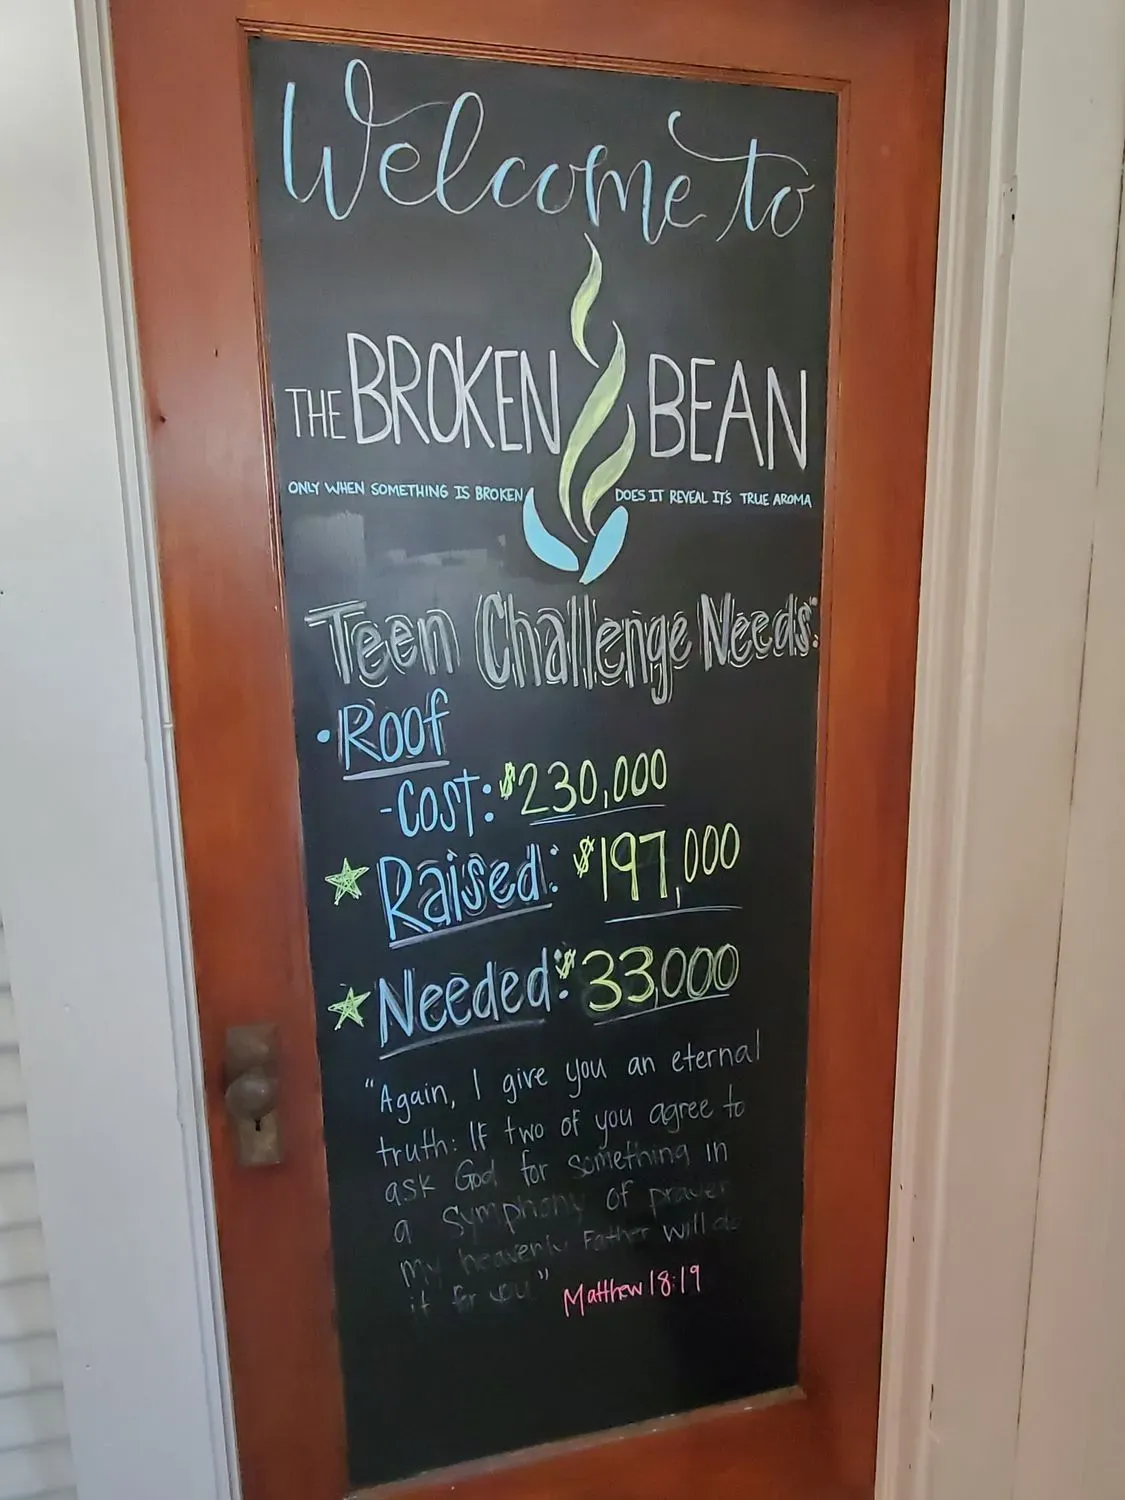 Welcome to
THE BROKEN BEAN
ONLY WHEN SOMETHING IS BROKEN DOES IT REVEAL IT'S TRUE AROMA
Teen Challenge Needs:
• Roof
- COST: $230,000
Raised: $197,000
Needed: $33,000
"Again, I give you an eternal
truth: If two of you agree to
ask God for something in
a symphony of prayer
my heavenly Father will do
it for you" Matthew 18:19